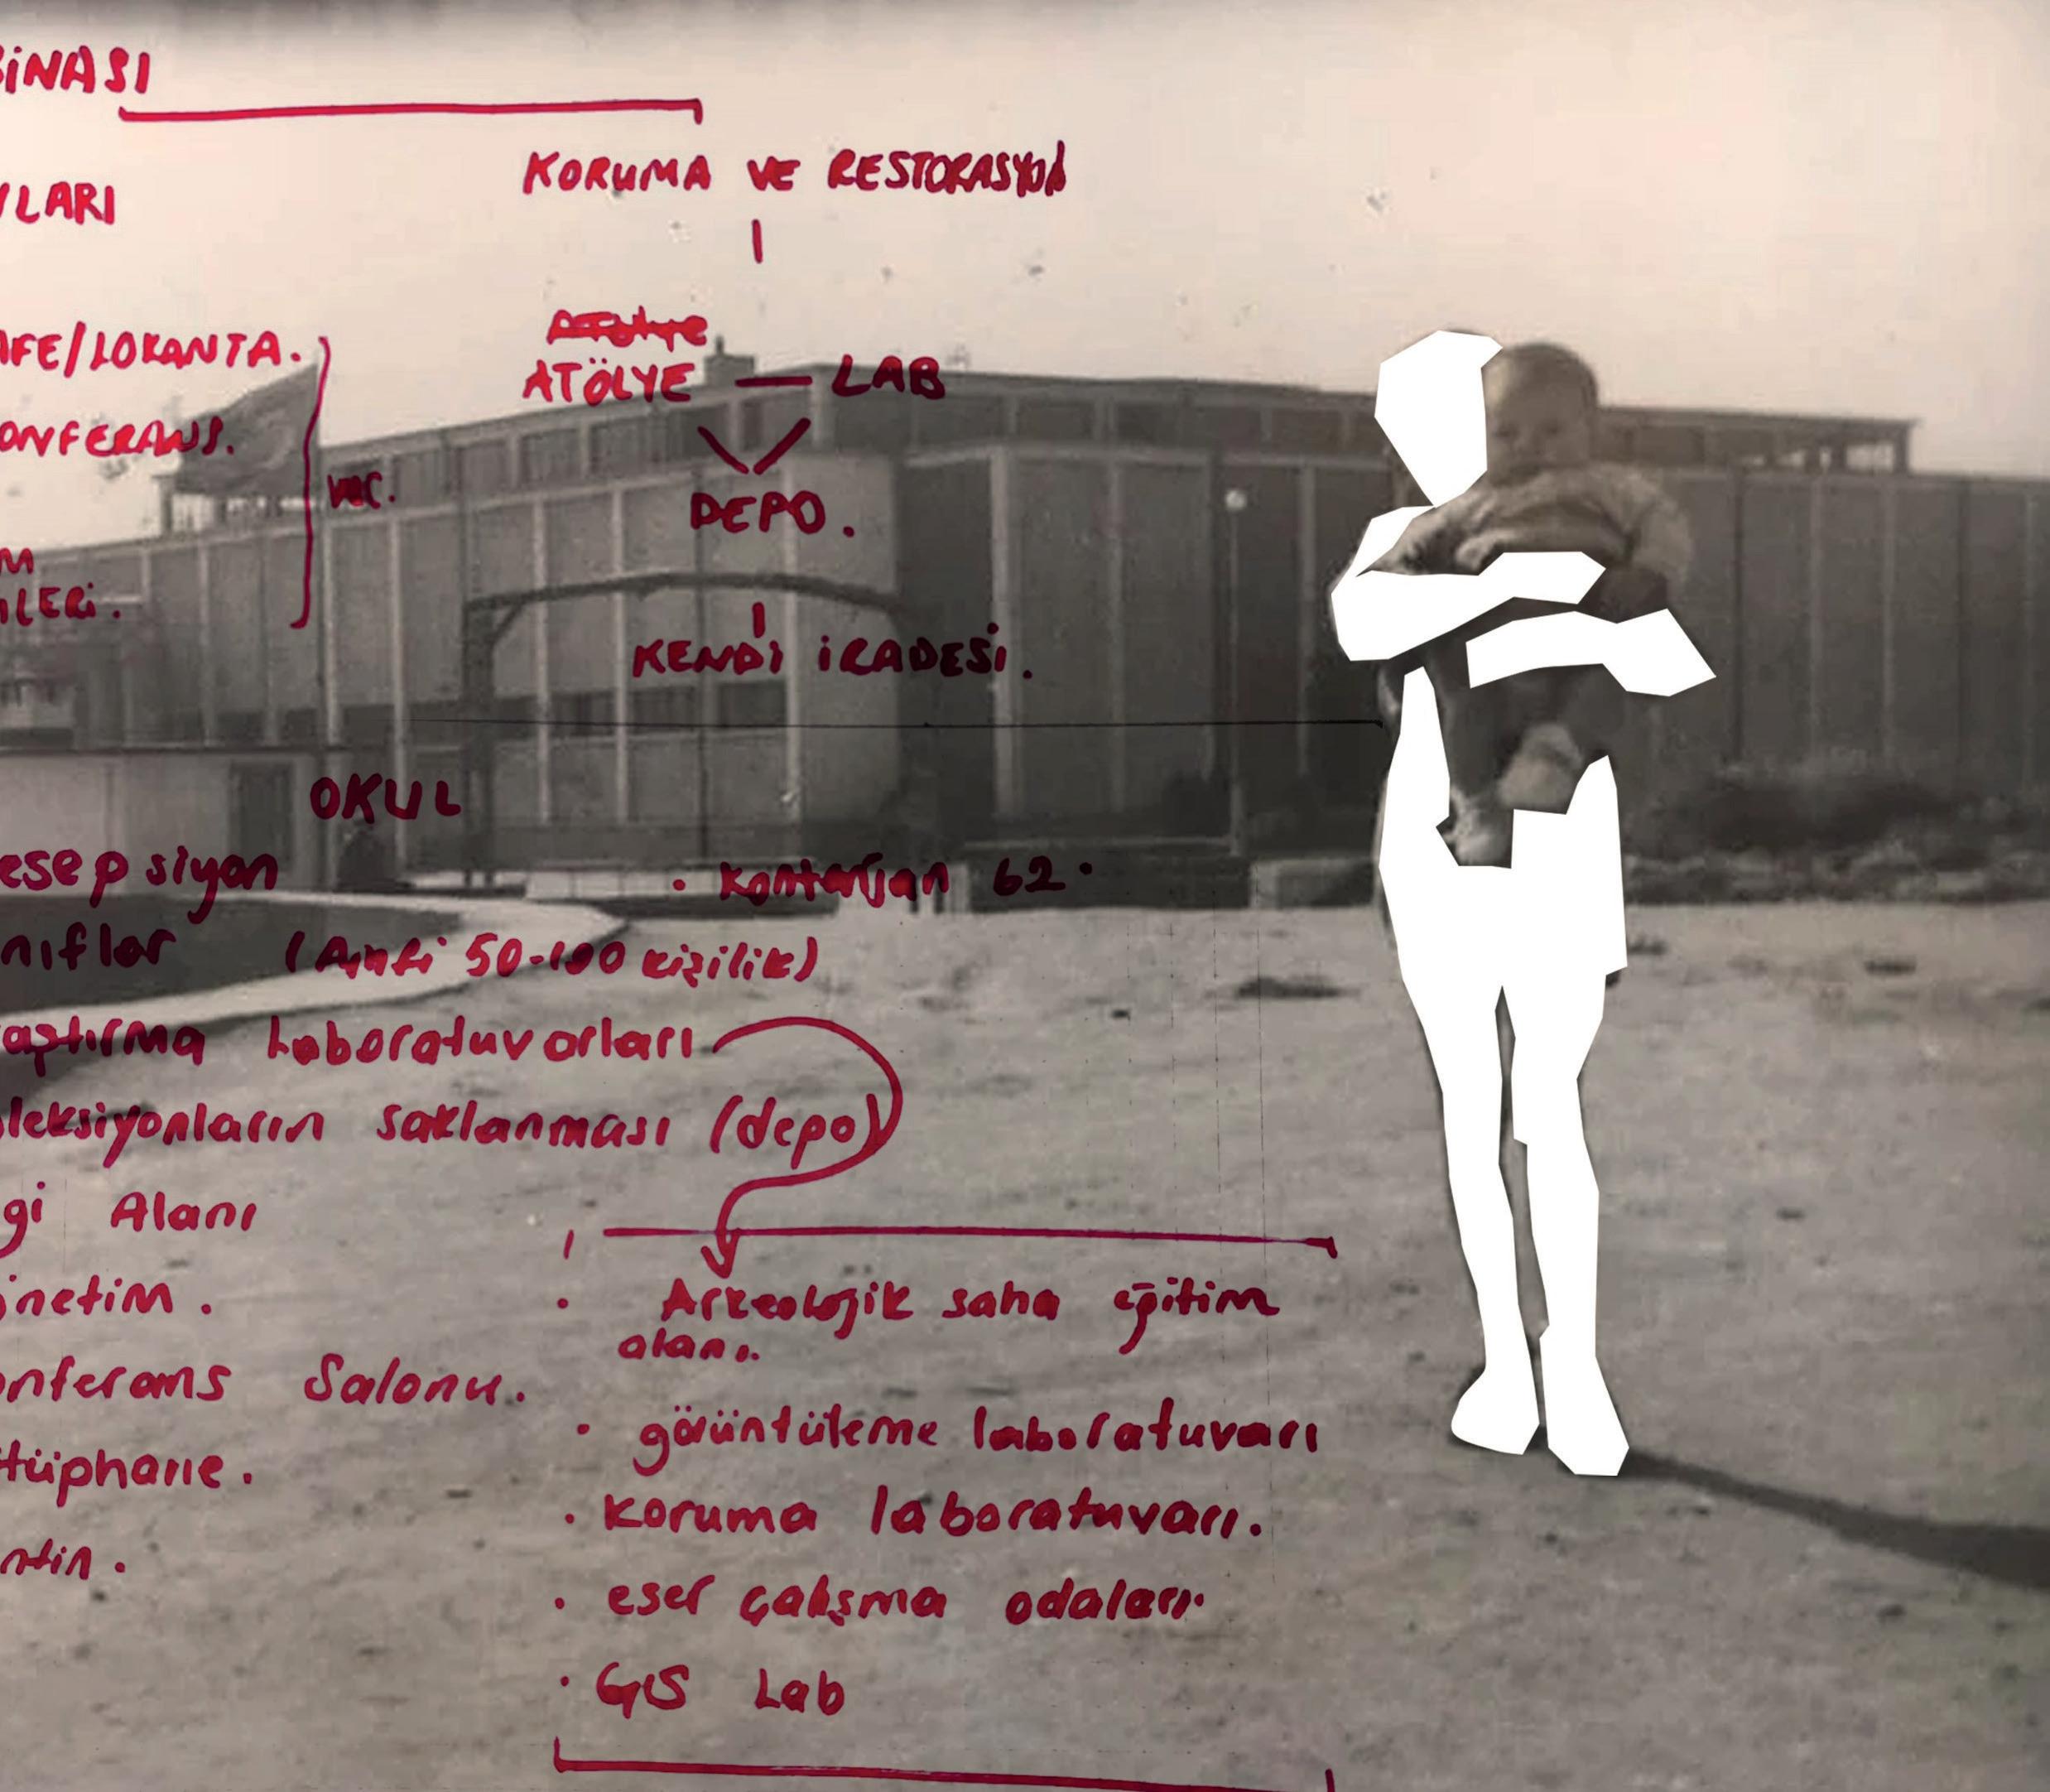 BİNASI
KORUMA VE RESTORASYON
AFE/LOKANTA.
ATÖLYE — LAB
ONFERANS.
WC.
DEPO.
İLERİ.
KENDİ İRADESİ.
OKUL
esepsiyon
kontenjan 62
nıflar (Amfi 50-100 kişilik)
aştırma Laboratuvarları
leksiyonların saklanması (depo)
gi Alanı
önetim.
• Arkeolojik saha eğitim
alanı.
onferans Salonu.
• görüntüleme laboratuvarı
tüphane.
• koruma laboratuvarı.
ntin.
• eser çalışma odaları.
• GIS Lab